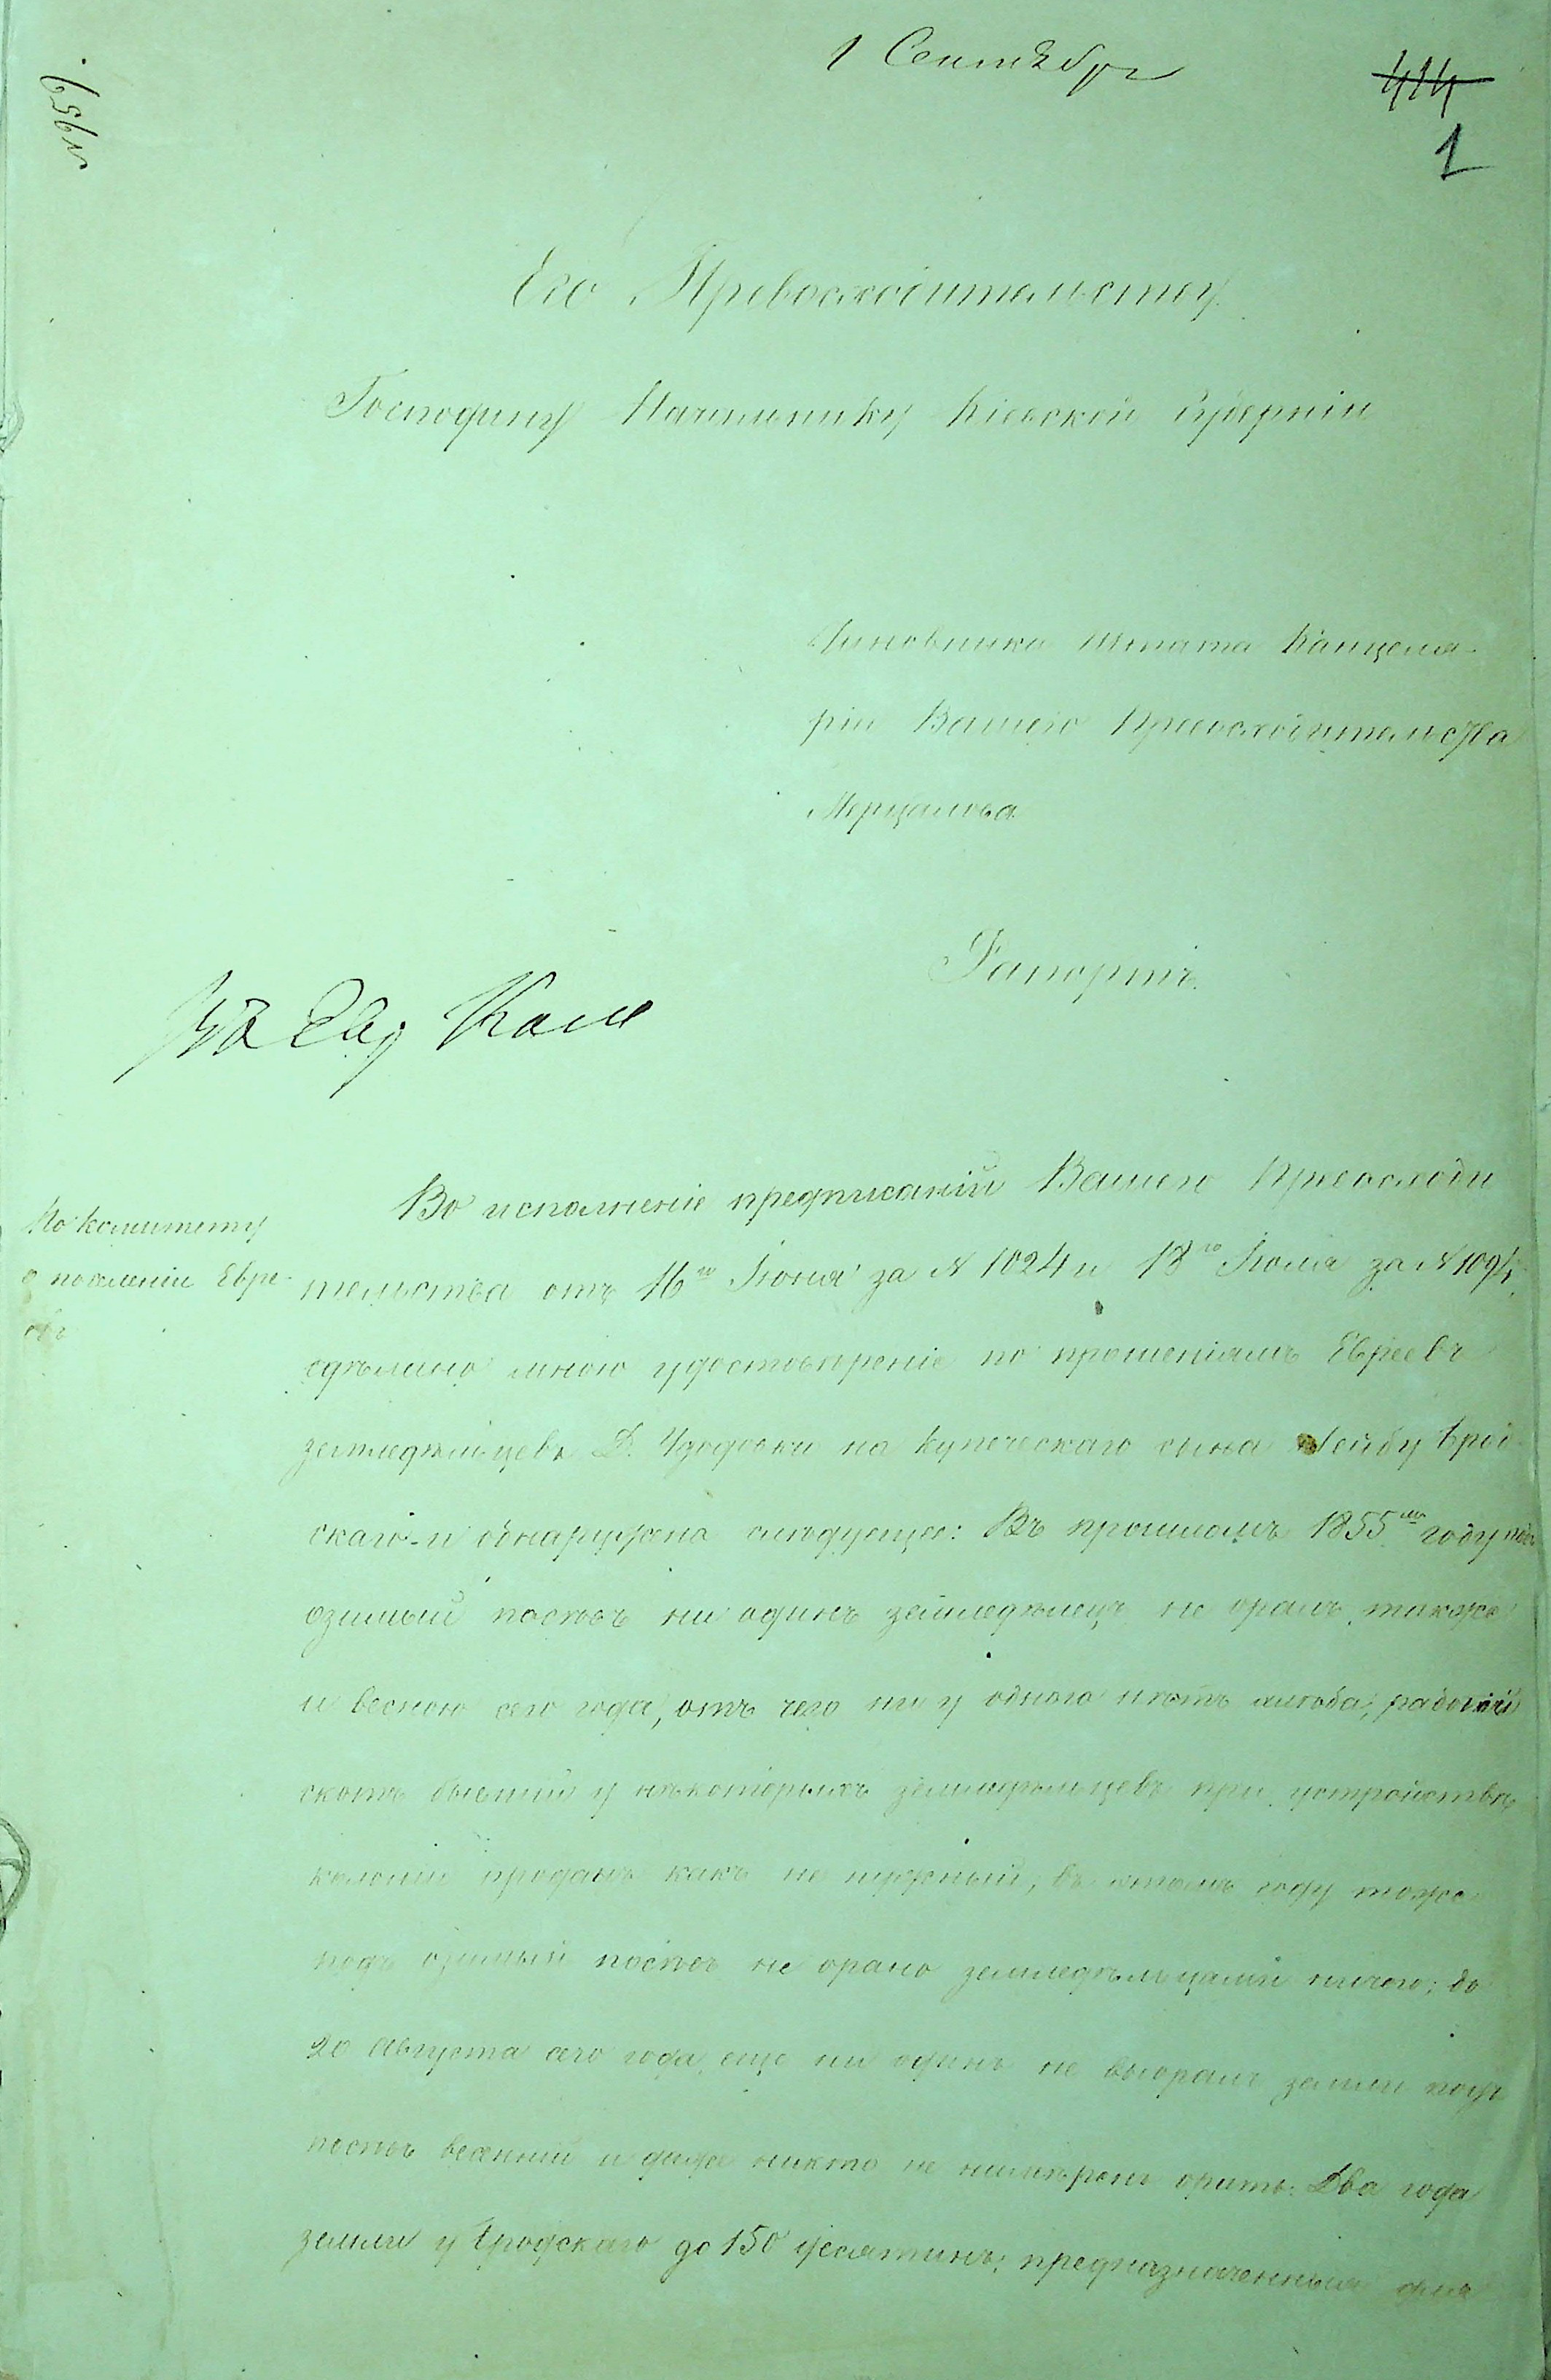 1 Сентября
414
1
№959.
Его Превосходительству
Господину Начальнику Кіевской Губерніи
Чиновника Штата Канцеля-
ріи Вашего Превосходительства
Мерцалова
Рапортъ.
Во исполненіе предписаній Вашего Превосходи
По комитету
о поселеніи Евре-
евъ
тельства отъ 16го Іюня за № 1024 и 18го Іюля за № 1094,
сдѣлано мною удостовѣреніе по прошеніямъ Евреевъ
земледѣльцевъ Д. на купеческаго сына Лейбу Брод
скаго и обнаружено слѣдующее: Въ прошломъ 1855мъ году подъ
озимый посѣвъ ни одинъ земледѣлецъ не оралъ, также
и весною сего года, отъ чего ни у одного нѣтъ хлѣба; рабочій
скотъ бывшій у нѣкоторыхъ земледѣльцевъ при устройствѣ
колоніи проданъ какъ не нужный; въ этомъ году тоже
подъ озимый посѣвъ не орано земледѣльцами ничего; до
20 Августа сего года еще ни одинъ не выоралъ земли подъ
посѣвъ весенній и даже никто не намѣренъ орать. Два года
земли у Бродскаго до 150 десятинъ, предназначенныя для